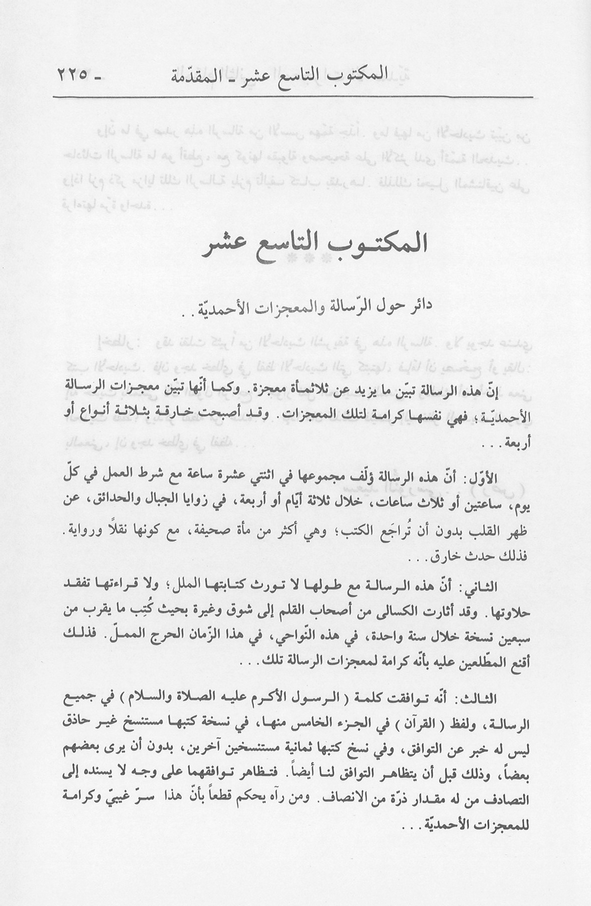 المكتوب التاسع عشر - المقدّمة - ٢٢٥
المكتوب التاسع عشر
دائر حول الرّسالة والمعجزات الأحمديّة . .
إنّ هذه الرسالة تبيّن ما يزيد عن ثلاثمأة معجزة. وكما أنّها تبيّن معجزات الرسالة
الأحمديّة؛ فهي نفسها كرامة لتلك المعجزات. وقد أصبحت خارقة بثلاثة أنواع أو
أربعة . . .
الأوّل: أنّ هذه الرسالة وُلّف مجموعها في اثنتي عشرة ساعة مع شرط العمل في كلّ
يوم، ساعتين أو ثلاث ساعات، خلال ثلاثة أيّام أو أربعة، في زوايا الجبال والحدائق، عن
ظهر القلب بدون أن تُراجَع الكتب؛ وهي أكثر من مأة صحيفة، مع كونها نقلاً ورواية.
فذلك حدث خارق . . .
الثاني: أنّ هذه الرسالة مع طولها لا تورث كتابتها الملل؛ ولا قراءتها تفقد
حلاوتها. وقد أثارت الكسالى من أصحاب القلم إلى شوق وغيرة بحيث كُتِب ما يقرب من
سبعين نسخة خلال سنة واحدة، في هذه النّواحي، في هذا الزّمان الحرج المملّ. فذلك
أقنع المطّلعين عليه بأنّه كرامة لمعجزات الرسالة تلك . . .
الثالث: أنّه توافقت كلمة (الرسول الأكرم عليه الصلاة والسلام) في جميع
الرسالة، ولفظ (القرآن) في الجزء الخامس منها، في نسخة كتبها مستنسخ غير حاذق
ليس له خبر عن التوافق، وفي نسخ كتبها ثمانية مستنسخين آخرين، بدون أن يرى بعضهم
بعضاً، وذلك قبل أن يتظاهر التوافق لنا أيضاً. فتظاهر توافقهما على وجه لا يسنده إلى
التصادف من له مقدار ذرّة من الانصاف. ومن رآه يحكم قطعاً بأنّ هذا سرّ غيبيّ وكرامة
للمعجزات الأحمديّة . . .